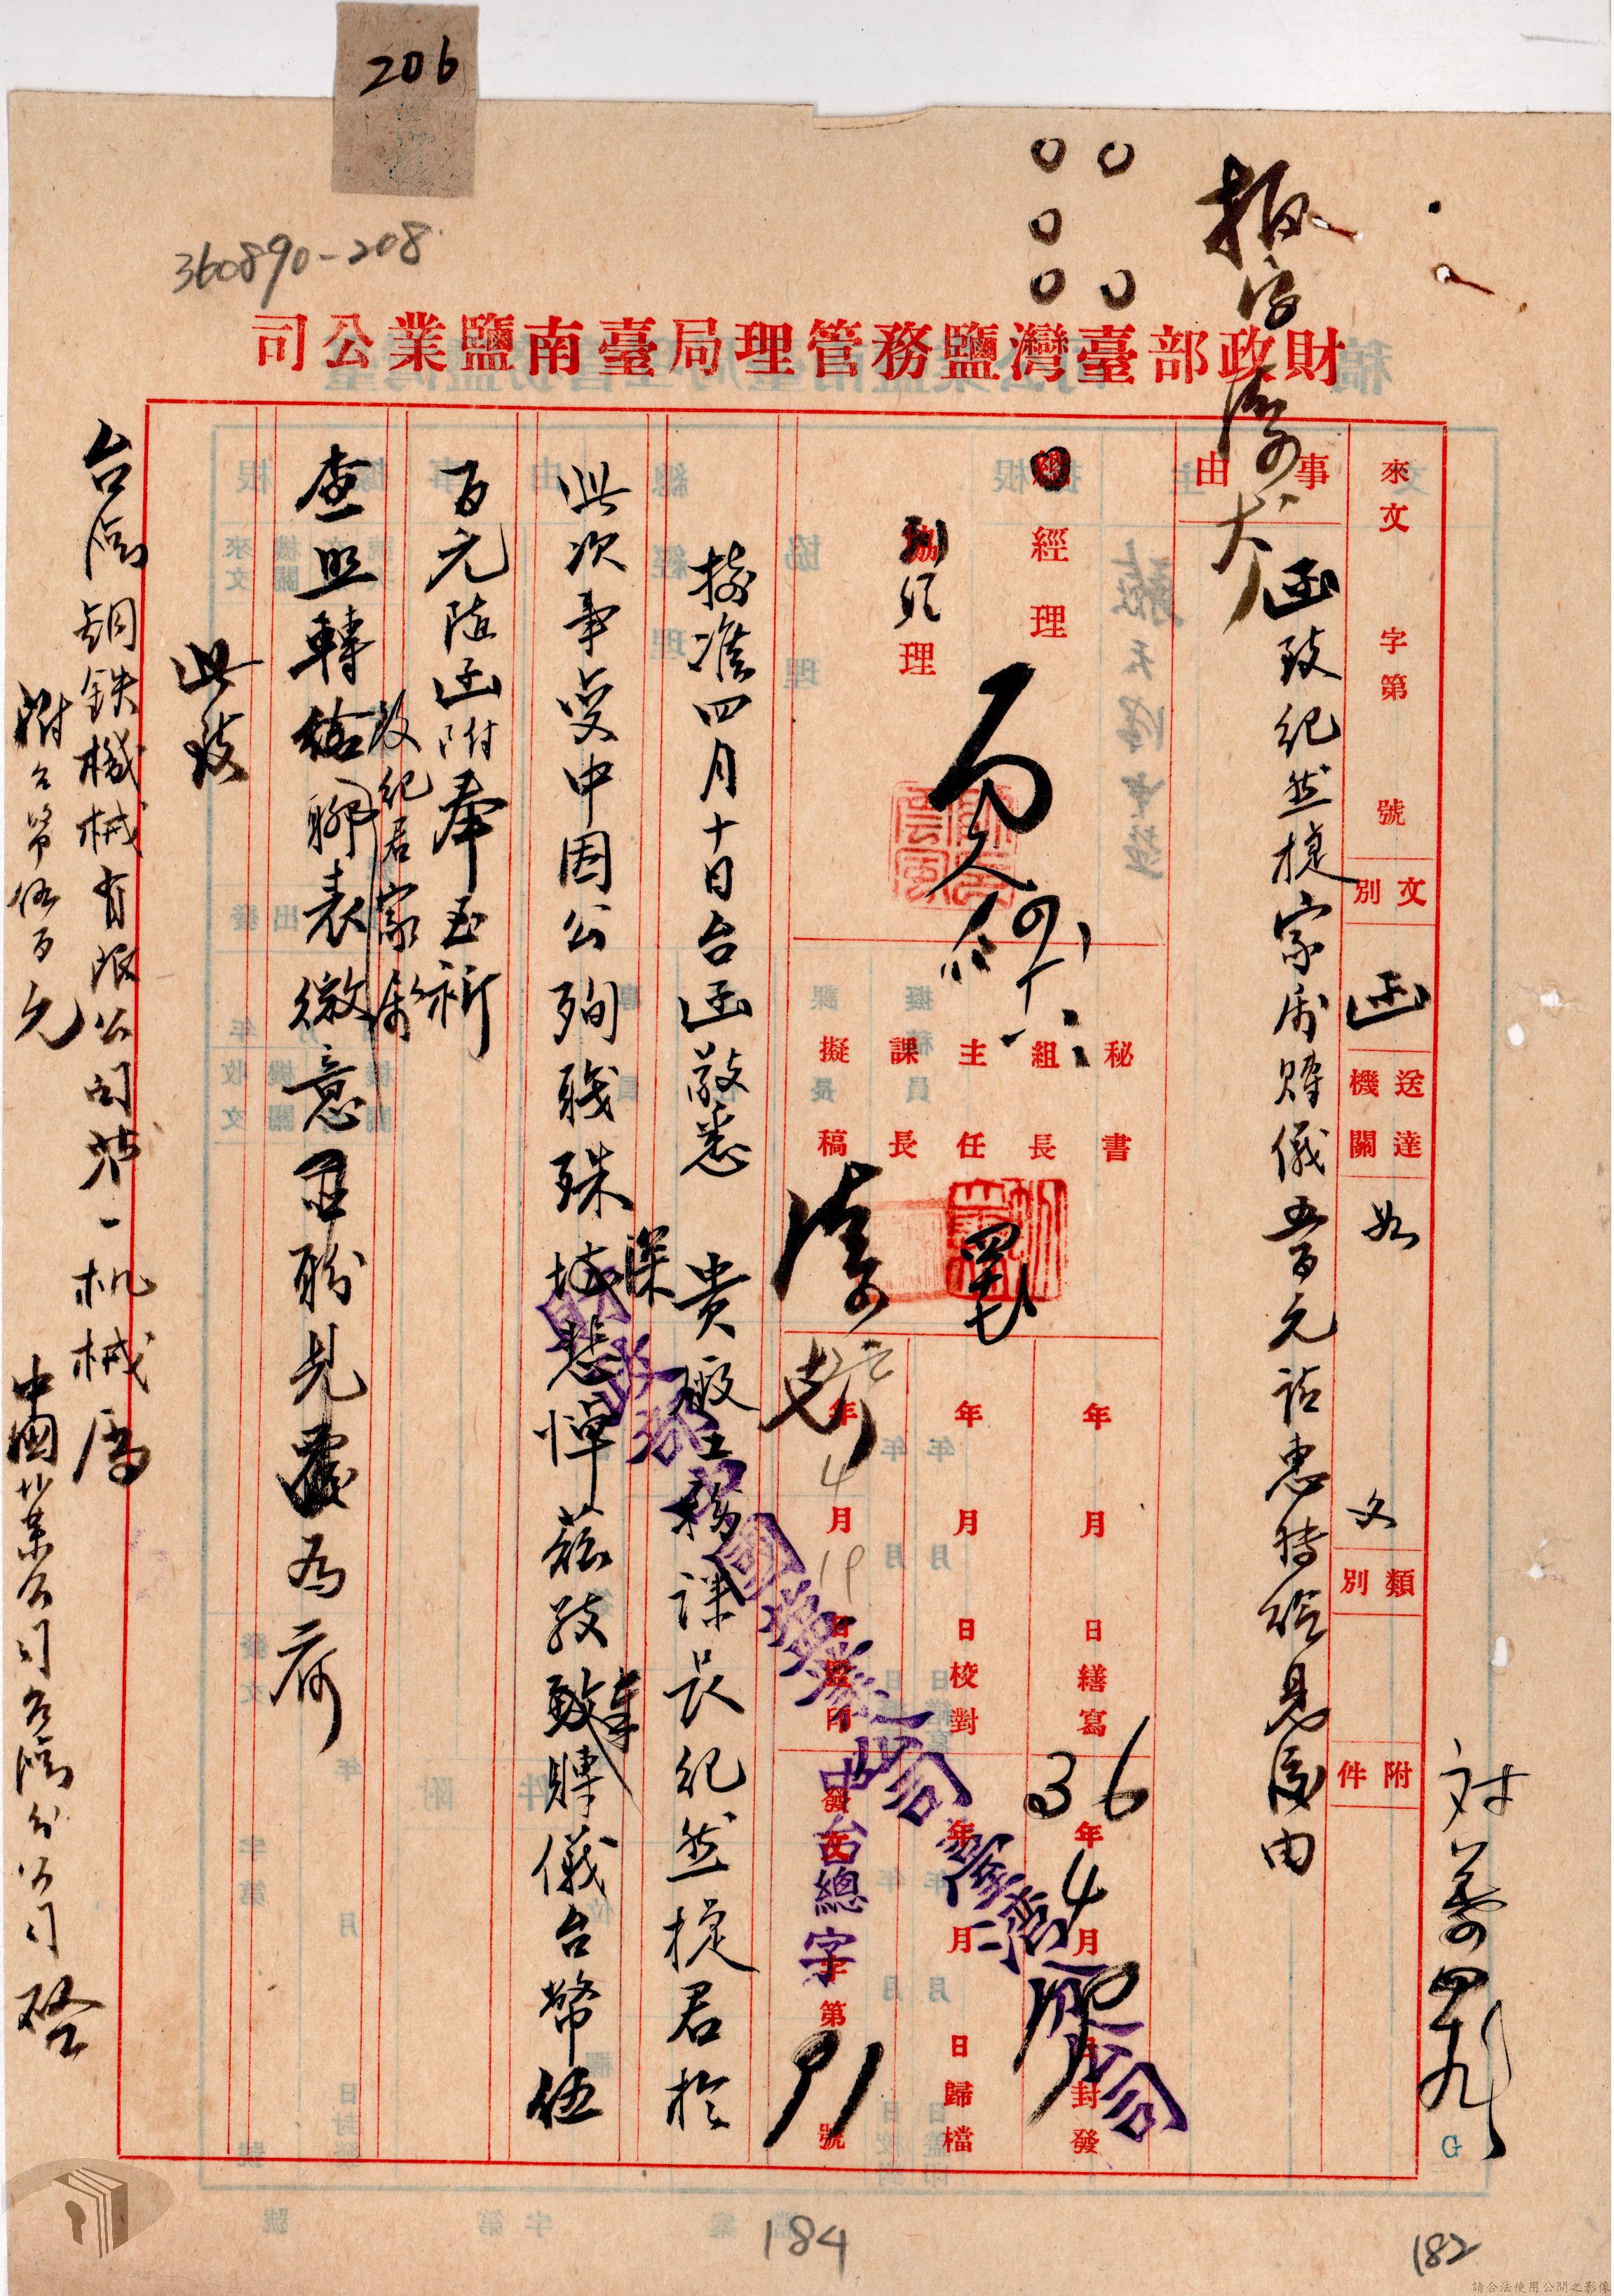 206
360890-208
財政部臺灣鹽務管理局臺南鹽業公司
來文 字第 號
文別 函
送達機關 如文
類別
附件
事由
函致紀然捷家屬賻儀五百元請惠特給見復由
總經理
協理
秘書
組長
主任
課長
擬稿
年 月 日繕寫
年 月 日校對
年4月19日監印
36年4月19日封發
年 月 日歸檔
發文 字第91號
中台總字
財政部
中國鹽業公司臺灣分公司
接准四月十日台函敬悉 貴廠工務課長紀然捷君於
此次事變中因公殉職殊深悲悼茲致奉賻儀台幣伍
百元隨函附奉至祈
查照轉給
故紀君家屬
聊表微意並盼見復為荷
此致
台灣鋼鐵機械有限公司第一机械廠
附台幣伍百元
中國鹽業公司台灣分公司 啓
184
182
G
請合法使用公開之影像